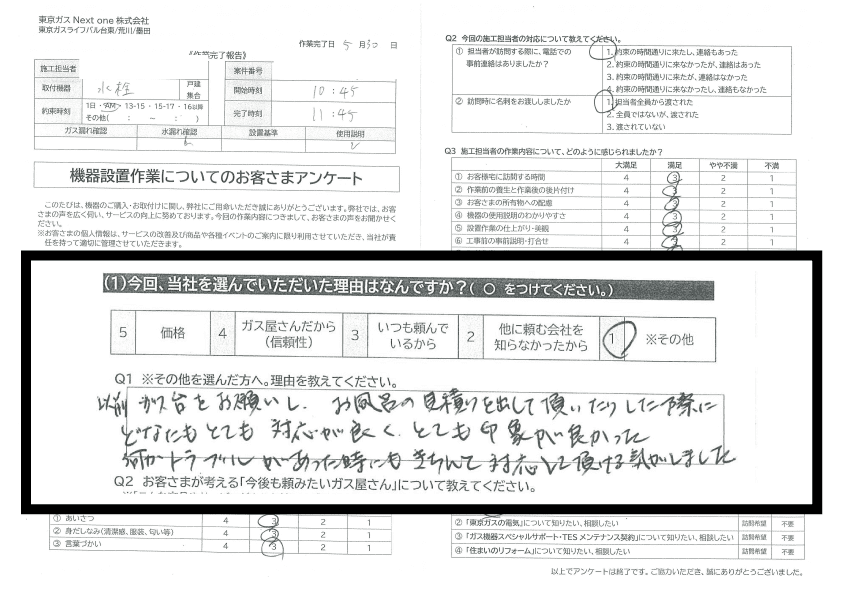 東京ガス Next one 株式会社
東京ガスライフバル台東/荒川/墨田
作業完了日 5 月 30 日
《作業完了報告》
施工担当者 案件番号
取付機器 水栓 戸建 集合 開始時刻 10:45
約束時刻 1日・AM・13-15・15-17・16以降 その他( : ~ : ) 完了時刻 11:45
ガス漏れ確認 水漏れ確認 設置基準 使用説明
レ レ
機器設置作業についてのお客さまアンケート
このたびは、機器のご購入・お取付けに関し、弊社にご用命いただき誠にありがとうございます。弊社では、お客
さまの声を広く伺い、サービスの向上に努めております。今回の作業内容につきまして、お客さまの声をお聞かせく
ださい。
※お客さまの個人情報は、サービスの改善及び商品や各種イベントのご案内に限り利用させていただき、当社が責
任を持って適切に管理させていただきます。
Q2 今回の施工担当者の対応について教えてください。
① 担当者が訪問する際に、電話での
事前連絡はありましたか?
1. 約束の時間通りに来たし、連絡もあった
2. 約束の時間通りに来なかったが、連絡はあった
3. 約束の時間通りに来たが、連絡はなかった
4. 約束の時間通りに来なかったし、連絡もなかった
② 訪問時に名刺をお渡ししましたか
1. 担当者全員から渡された
2. 全員ではないが、渡された
3. 渡されていない
Q3 施工担当者の作業内容について、どのように感じられましたか?
大満足 満足 やや不満 不満
① お客様宅に訪問する時間 4 3 2 1
② 作業前の養生と作業後の後片付け 4 3 2 1
③ お客さまの所有物への配慮 4 3 2 1
④ 機器の使用説明のわかりやすさ 4 3 2 1
⑤ 設置作業の仕上がり・美観 4 3 2 1
⑥ 工事前の事前説明・打合せ 4 3 2 1
(1)今回、当社を選んでいただいた理由はなんですか?( ○ をつけてください。)
5 価格 4 ガス屋さんだから(信頼性) 3 いつも頼んでいるから 2 他に頼む会社を知らなかったから 1 ※その他
Q1 ※その他を選んだ方へ。理由を教えてください。
以前 ガス台をお願いし、お風呂の見積りを出して頂いたりした際に
どなたもとても対応が良く、とても印象が良かった
何かトラブルがあった時にもきちんと対応して頂ける気がしました
Q2 お客さまが考える「今後も頼みたいガス屋さん」について教えてください。
① あいさつ 4 3 2 1
② 身だしなみ(清潔感、服装、匂い等) 4 3 2 1
③ 言葉づかい 4 3 2 1
② 「東京ガスの電気」について知りたい、相談したい 訪問希望 不要
③ 「ガス機器スペシャルサポート・TES メンテナンス契約」について知りたい、相談したい 訪問希望 不要
④ 「住まいのリフォーム」について知りたい、相談したい 訪問希望 不要
以上でアンケートは終了です。ご協力いただき、誠にありがとうございました。